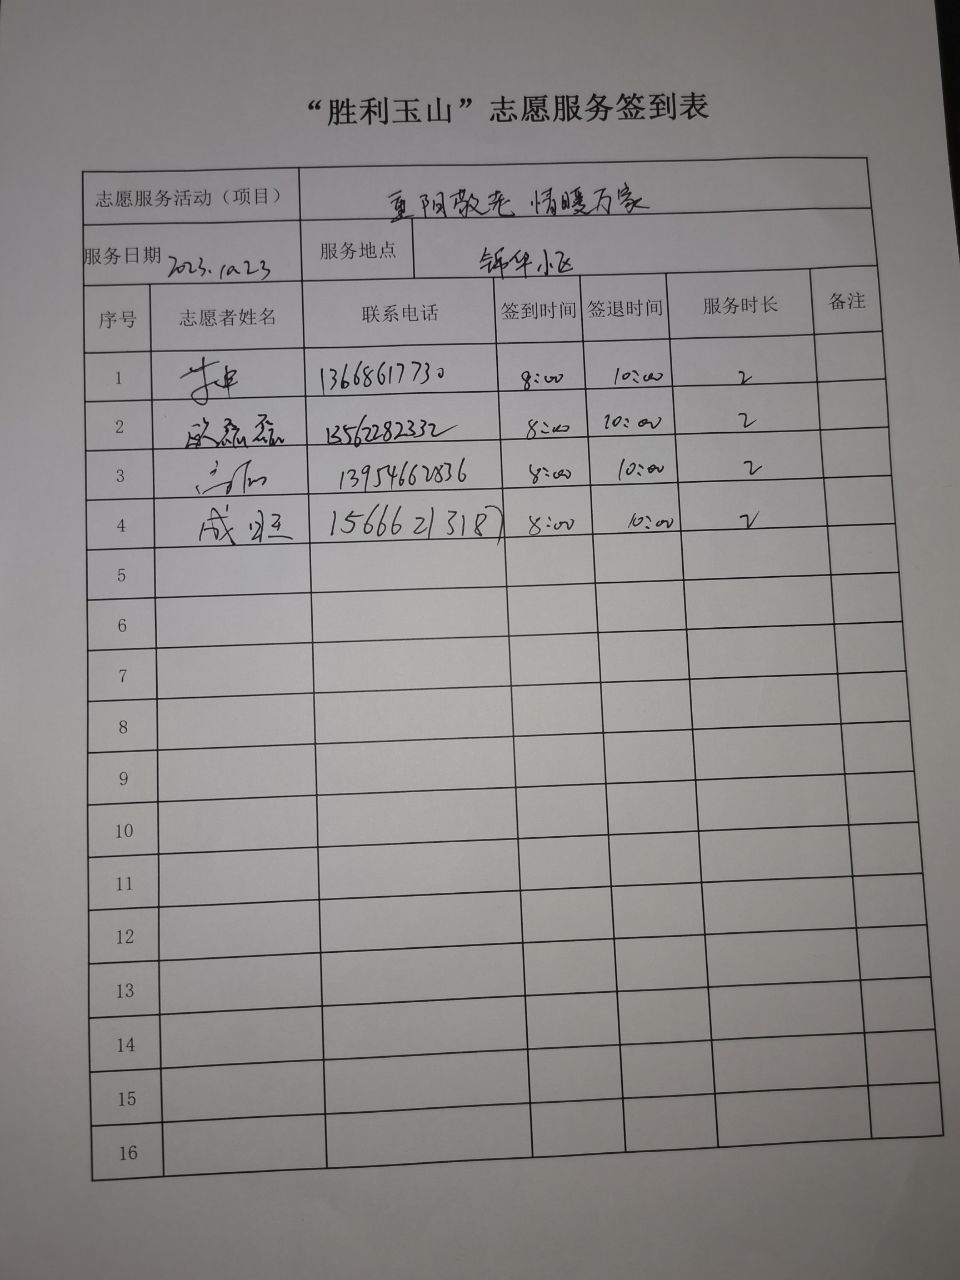 “胜利玉山”志愿服务签到表
志愿服务活动（项目） 重阳敬老 情暖万家
服务日期 2023.10.23 服务地点 锦华小区
序号 志愿者姓名 联系电话 签到时间 签退时间 服务时长 备注
1 13668617730 8:00 10:00 2
2 13562282332 8:00 10:00 2
3 13954662836 8:00 10:00 2
4 成 15666213187 8:00 10:00 2
5
6
7
8
9
10
11
12
13
14
15
16